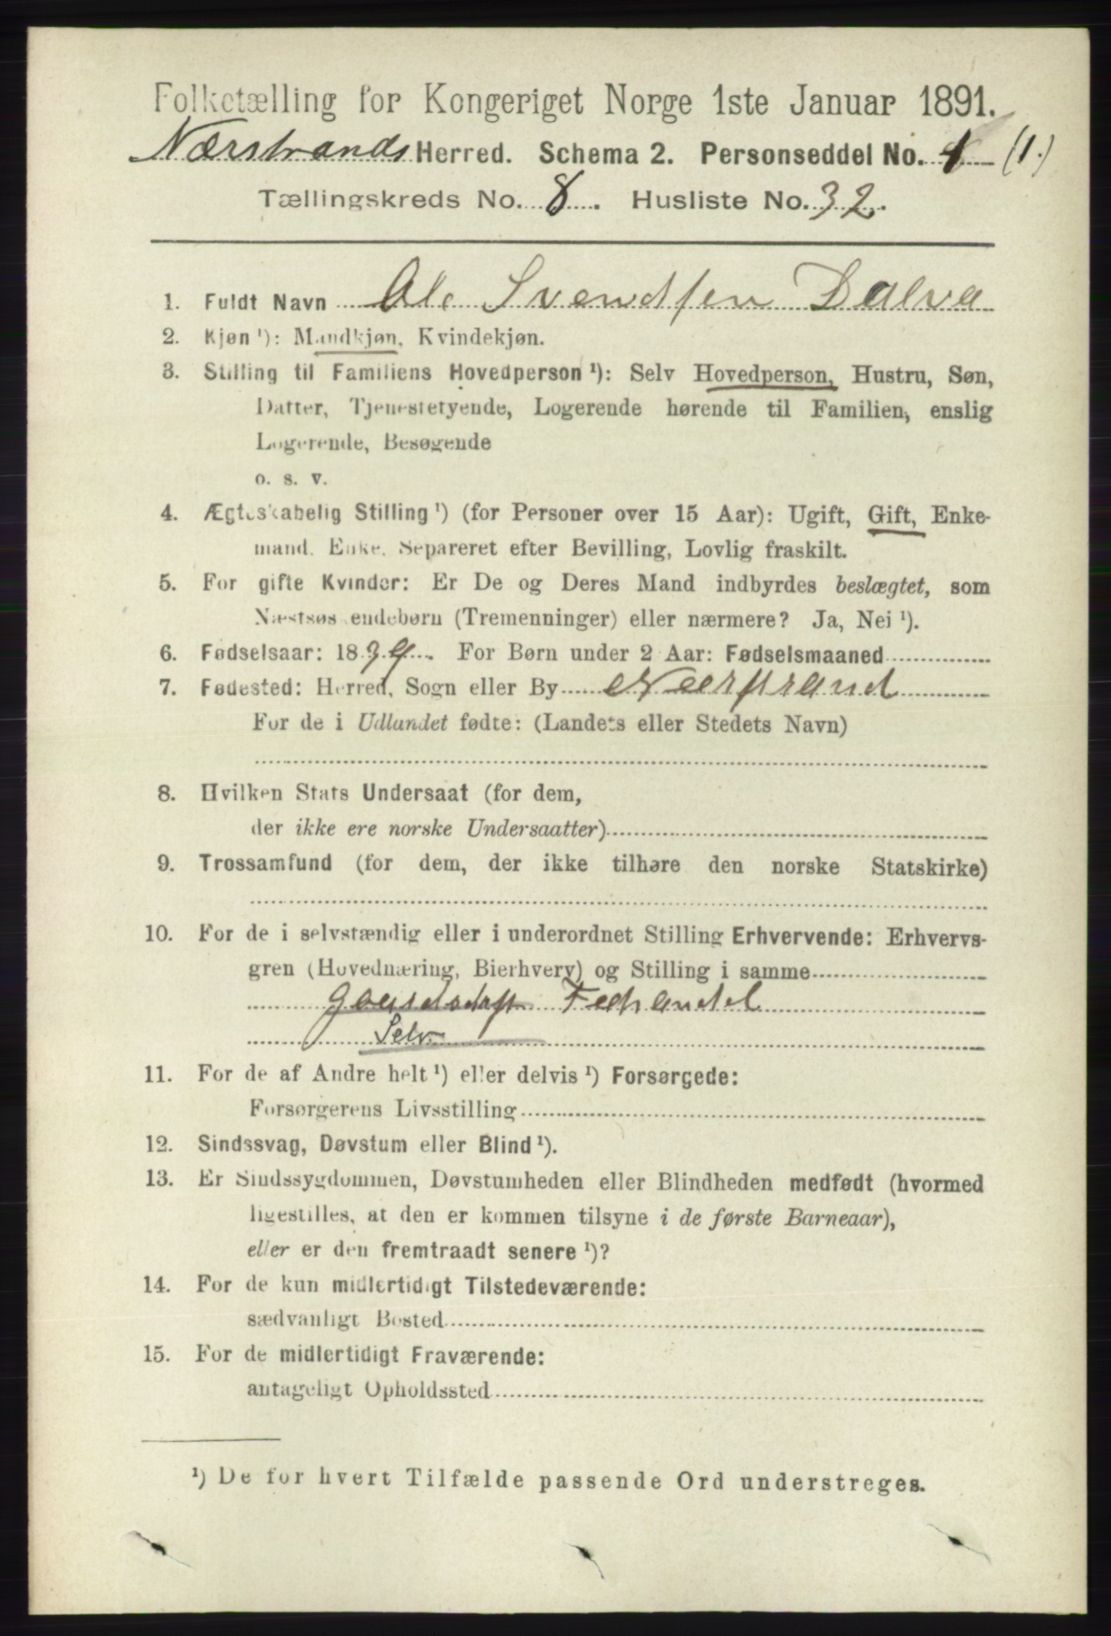 Folketælling for Kongeriget Norge 1ste Januar 1891.
Nærstrands Herred. Schema 2. Personseddel No. 1 (1.)
Tællingskreds No. 8. Husliste No. 32.
1. Fuldt Navn Ole Svendsen Dalva
2. Kjøn ¹): Mandkjøn, Kvindekjøn.
3. Stilling til Familiens Hovedperson ¹): Selv Hovedperson, Hustru, Søn,
Datter, Tjenestetyende, Logerende hørende til Familien, enslig
Logerende, Besøgende
o. s. v.
4. Ægteskabelig Stilling ¹) (for Personer over 15 Aar): Ugift, Gift, Enke-
mand, Enke, Separeret efter Bevilling, Lovlig fraskilt.
5. For gifte Kvinder: Er De og Deres Mand indbyrdes beslægtet, som
Næstsøskendebørn (Tremenninger) eller nærmere? Ja, Nei ¹).
6. Fødselsaar: 1839. For Børn under 2 Aar: Fødselsmaaned
7. Fødested: Herred, Sogn eller By Nærstrand
For de i Udlandet fødte: (Landets eller Stedets Navn)
8. Hvilken Stats Undersaat (for dem,
der ikke ere norske Undersaatter)
9. Trossamfund (for dem, der ikke tilhøre den norske Statskirke)
10. For de i selvstændig eller i underordnet Stilling Erhvervende: Erhvervs-
gren (Hovednæring, Bierhverv) og Stilling i samme
Gaardsdrift Fæhandel
Selv
11. For de af Andre helt ¹) eller delvis ¹) Forsørgede:
Forsørgerens Livsstilling
12. Sindssvag, Døvstum eller Blind ¹).
13. Er Sindssygdommen, Døvstumheden eller Blindheden medfødt (hvormed
ligestilles, at den er kommen tilsyne i de første Barneaar),
eller er den fremtraadt senere ¹)?
14. For de kun midlertidigt Tilstedeværende:
sædvanligt Bosted
15. For de midlertidigt Fraværende:
antageligt Opholdssted
¹) De for hvert Tilfælde passende Ord understreges.